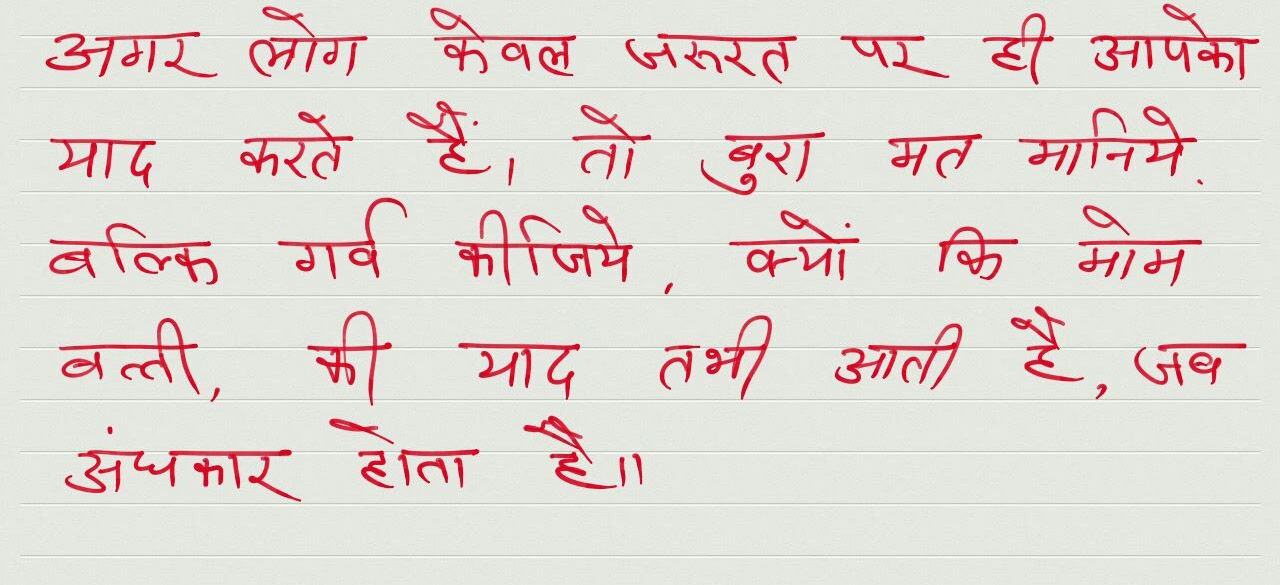 अगर लोग केवल जरूरत पर ही आपको
याद करते हैं, तो बुरा मत मानिये.
बल्कि गर्व कीजिये, क्यों कि मोम
बत्ती, की याद तभी आती है, जब
अंधकार होता है॥